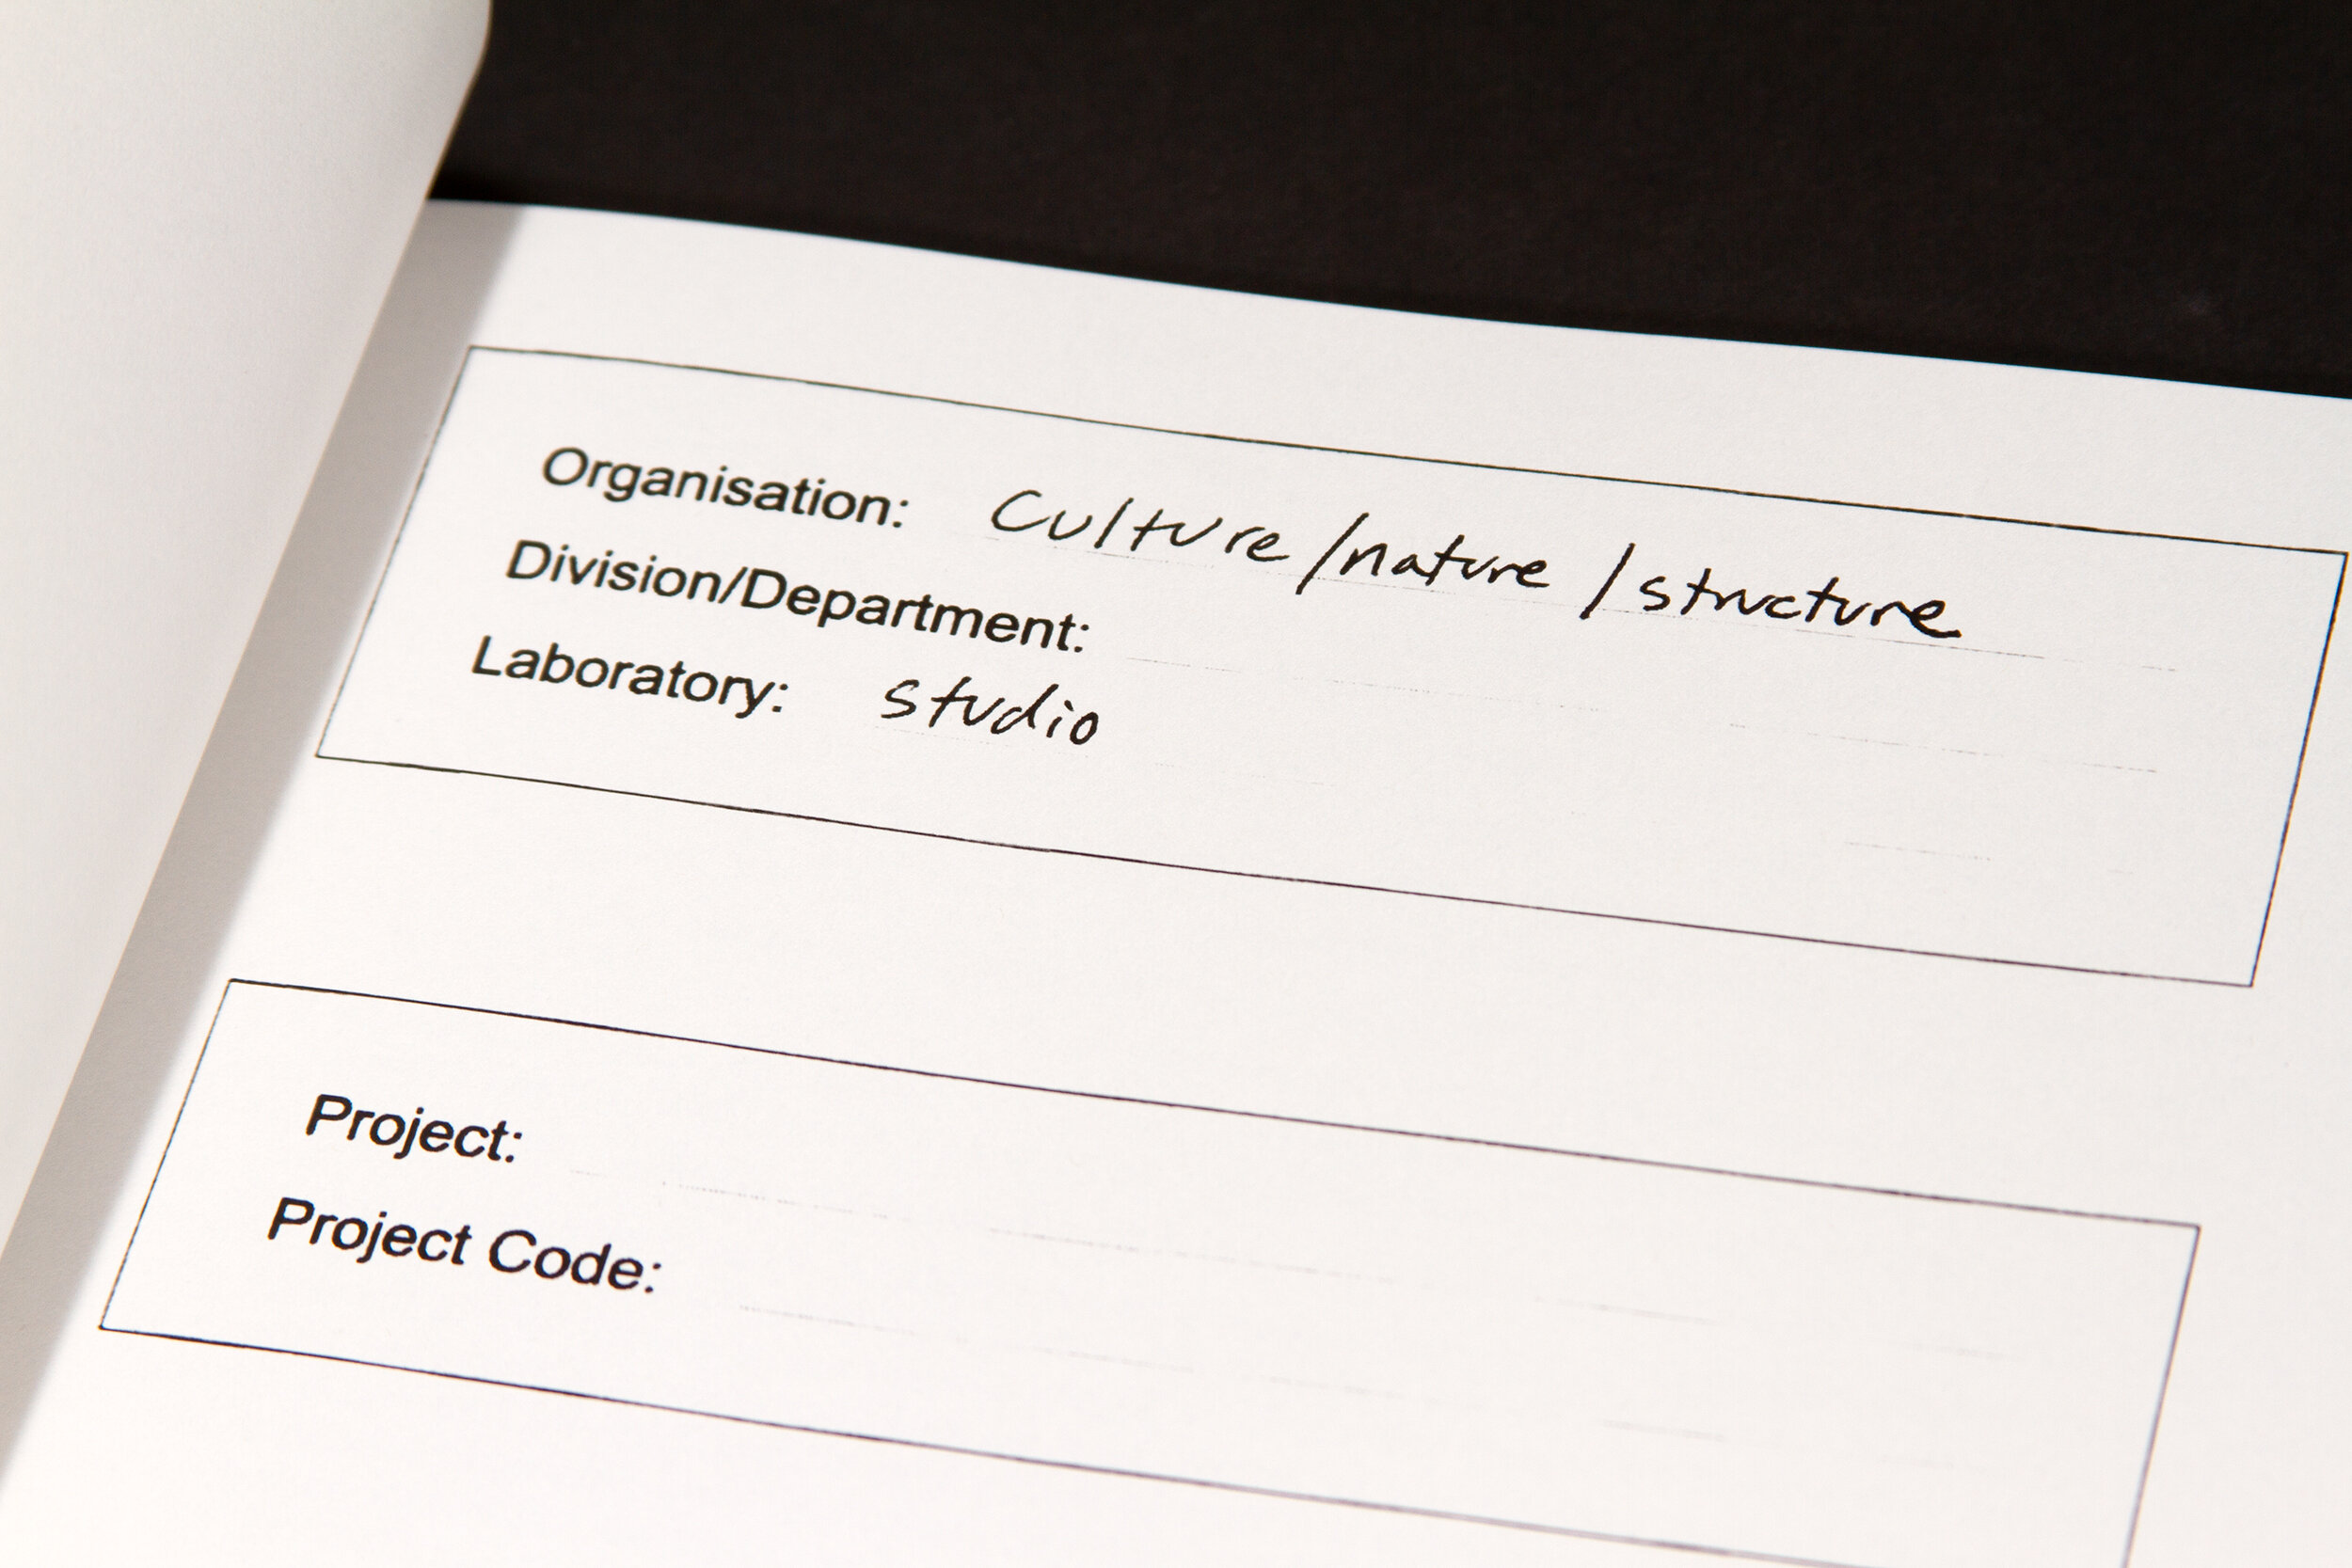 Organisation: Culture/nature/structure
Division/Department:
Laboratory: studio
Project:
Project Code: